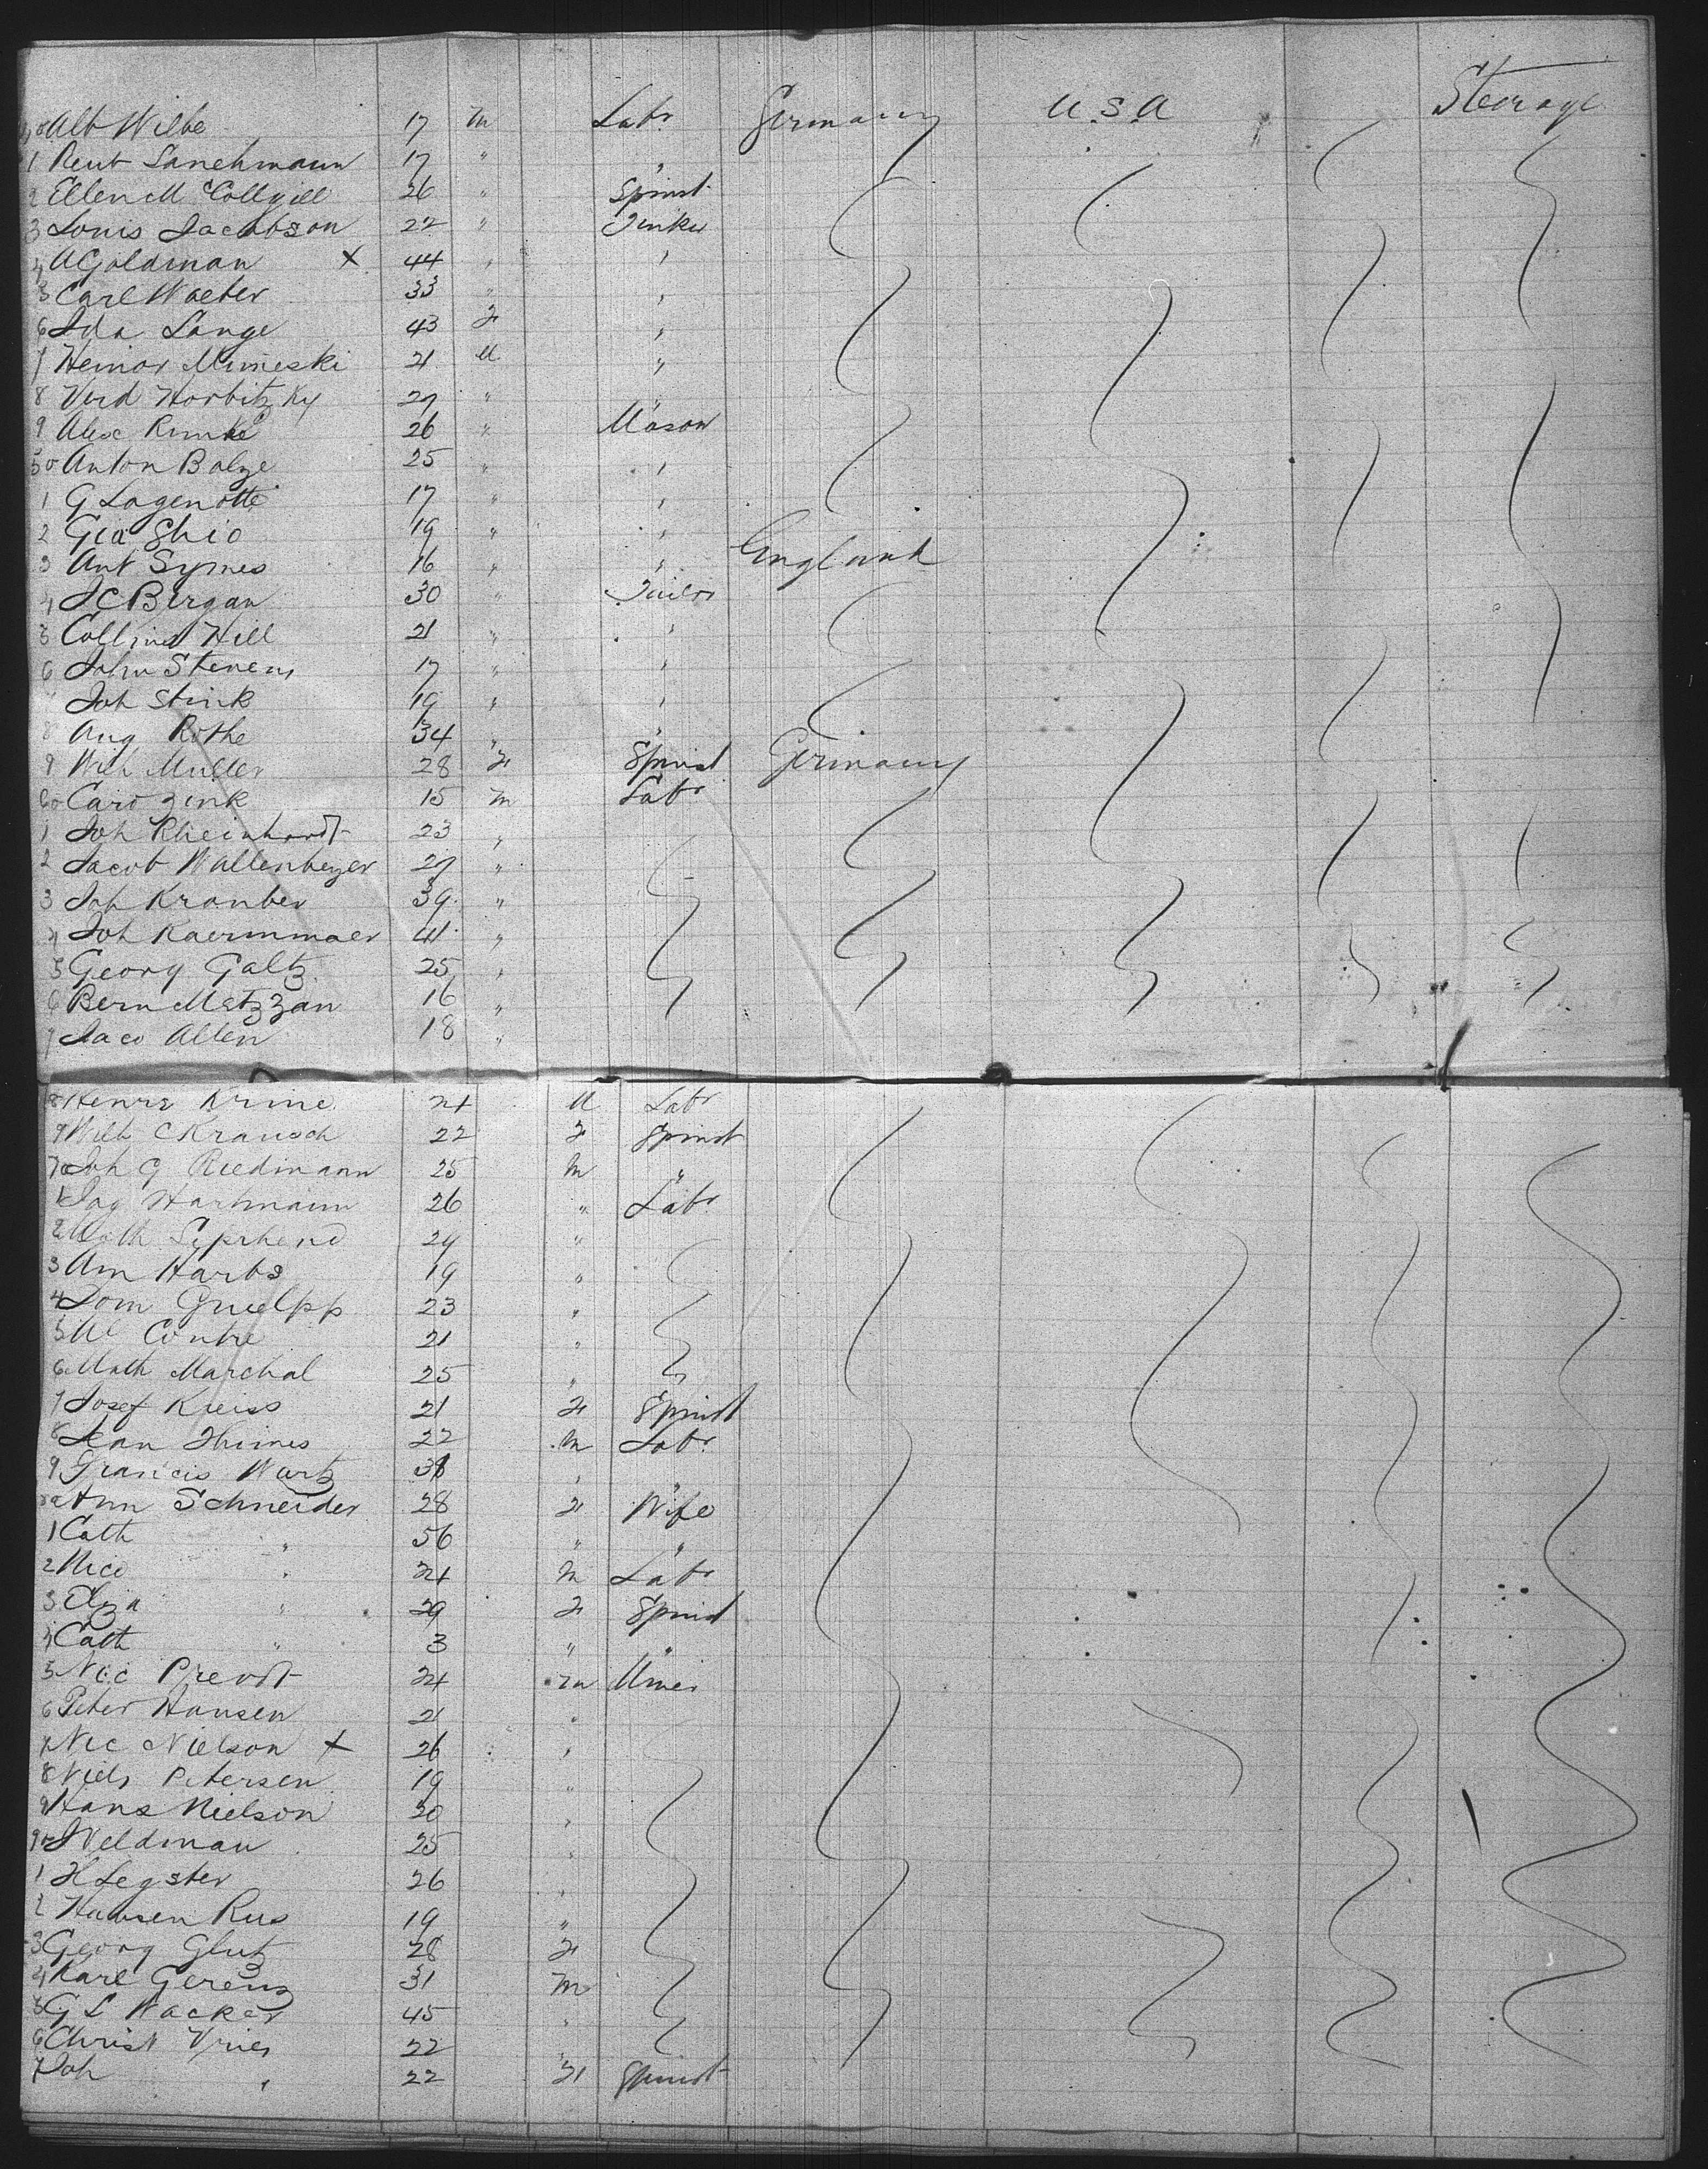 40 Alb Wilbe 17 m Labr Germany U.S.A Steerage
1 Lanehmann 17 " "
2 Ellen McCollgill 26 " Spinst
3 Louis Jacobson 22 " Tinker
4 A Goldman X 44 " "
5 Carl Waeber 33 " "
6 Ida Lange 43 F "
7 Heinor Mimeski 21 M "
8 Horbitzky 27 " "
9 Alex Rimke 26 " Mason
50 Anton Balze 25 " "
1 G Lagenotte 17 " "
2 Gia Ghio 19 " "
3 Ant Symes 16 " " England
4 J C Bergan 30 " Tailor
5 Collins Hill 21 " "
6 John Stevens 17 " "
Joh Stink 19 " "
8 Aug Rothe 34 " "
9 Wilh Muller 28 F Spinst Germany
60 Caro Zink 15 m Labr
1 Joh Rheinhardt 23 "
2 Jacob Wallenbezer 27 "
3 Joh Kranber 39 "
4 Joh Kaermmaer 41 "
5 Georg Galtz 25 "
6 Bern Metzzan 16 "
7 Jaco Allen 18 "
8 Henre Krine 24 M Labr
9 Wilh C Krausch 22 F Spinst
70 Joh G Riedmann 25 m "
1 Jag Hartmann 26 " Labr
2 24 "
3 Am Harbs 19 "
4 Dom Guelpp 23 "
5 Al Contre 21 "
6 Math Marchal 25 "
7 Josef Kreiss 21 F Spinst
8 Jean Thimes 22 m Labr
9 Francis Wurtz 38 " "
80 Ann Schneider 28 F Wife
1 Cath " 56 " "
2 Nico " 24 m Labr
3 Eliza " 29 F Spinst
4 Cath " 3 " "
5 Nic Prevot 24 m Miner
6 Peter Hansen 21 "
7 Nic Nielson X 26 "
8 Niels Petersen 19 "
9 Hans Nielson 30 "
90 J Veldman 25 "
1 H Legster 26 "
2 Hansen Rus 19 "
3 Georg Glutz 28 F
4 Karl Gerenz 31 m
5 G L Wacker 45 "
6 Christ Vries 22 "
7 Joh " 22 F Spinst